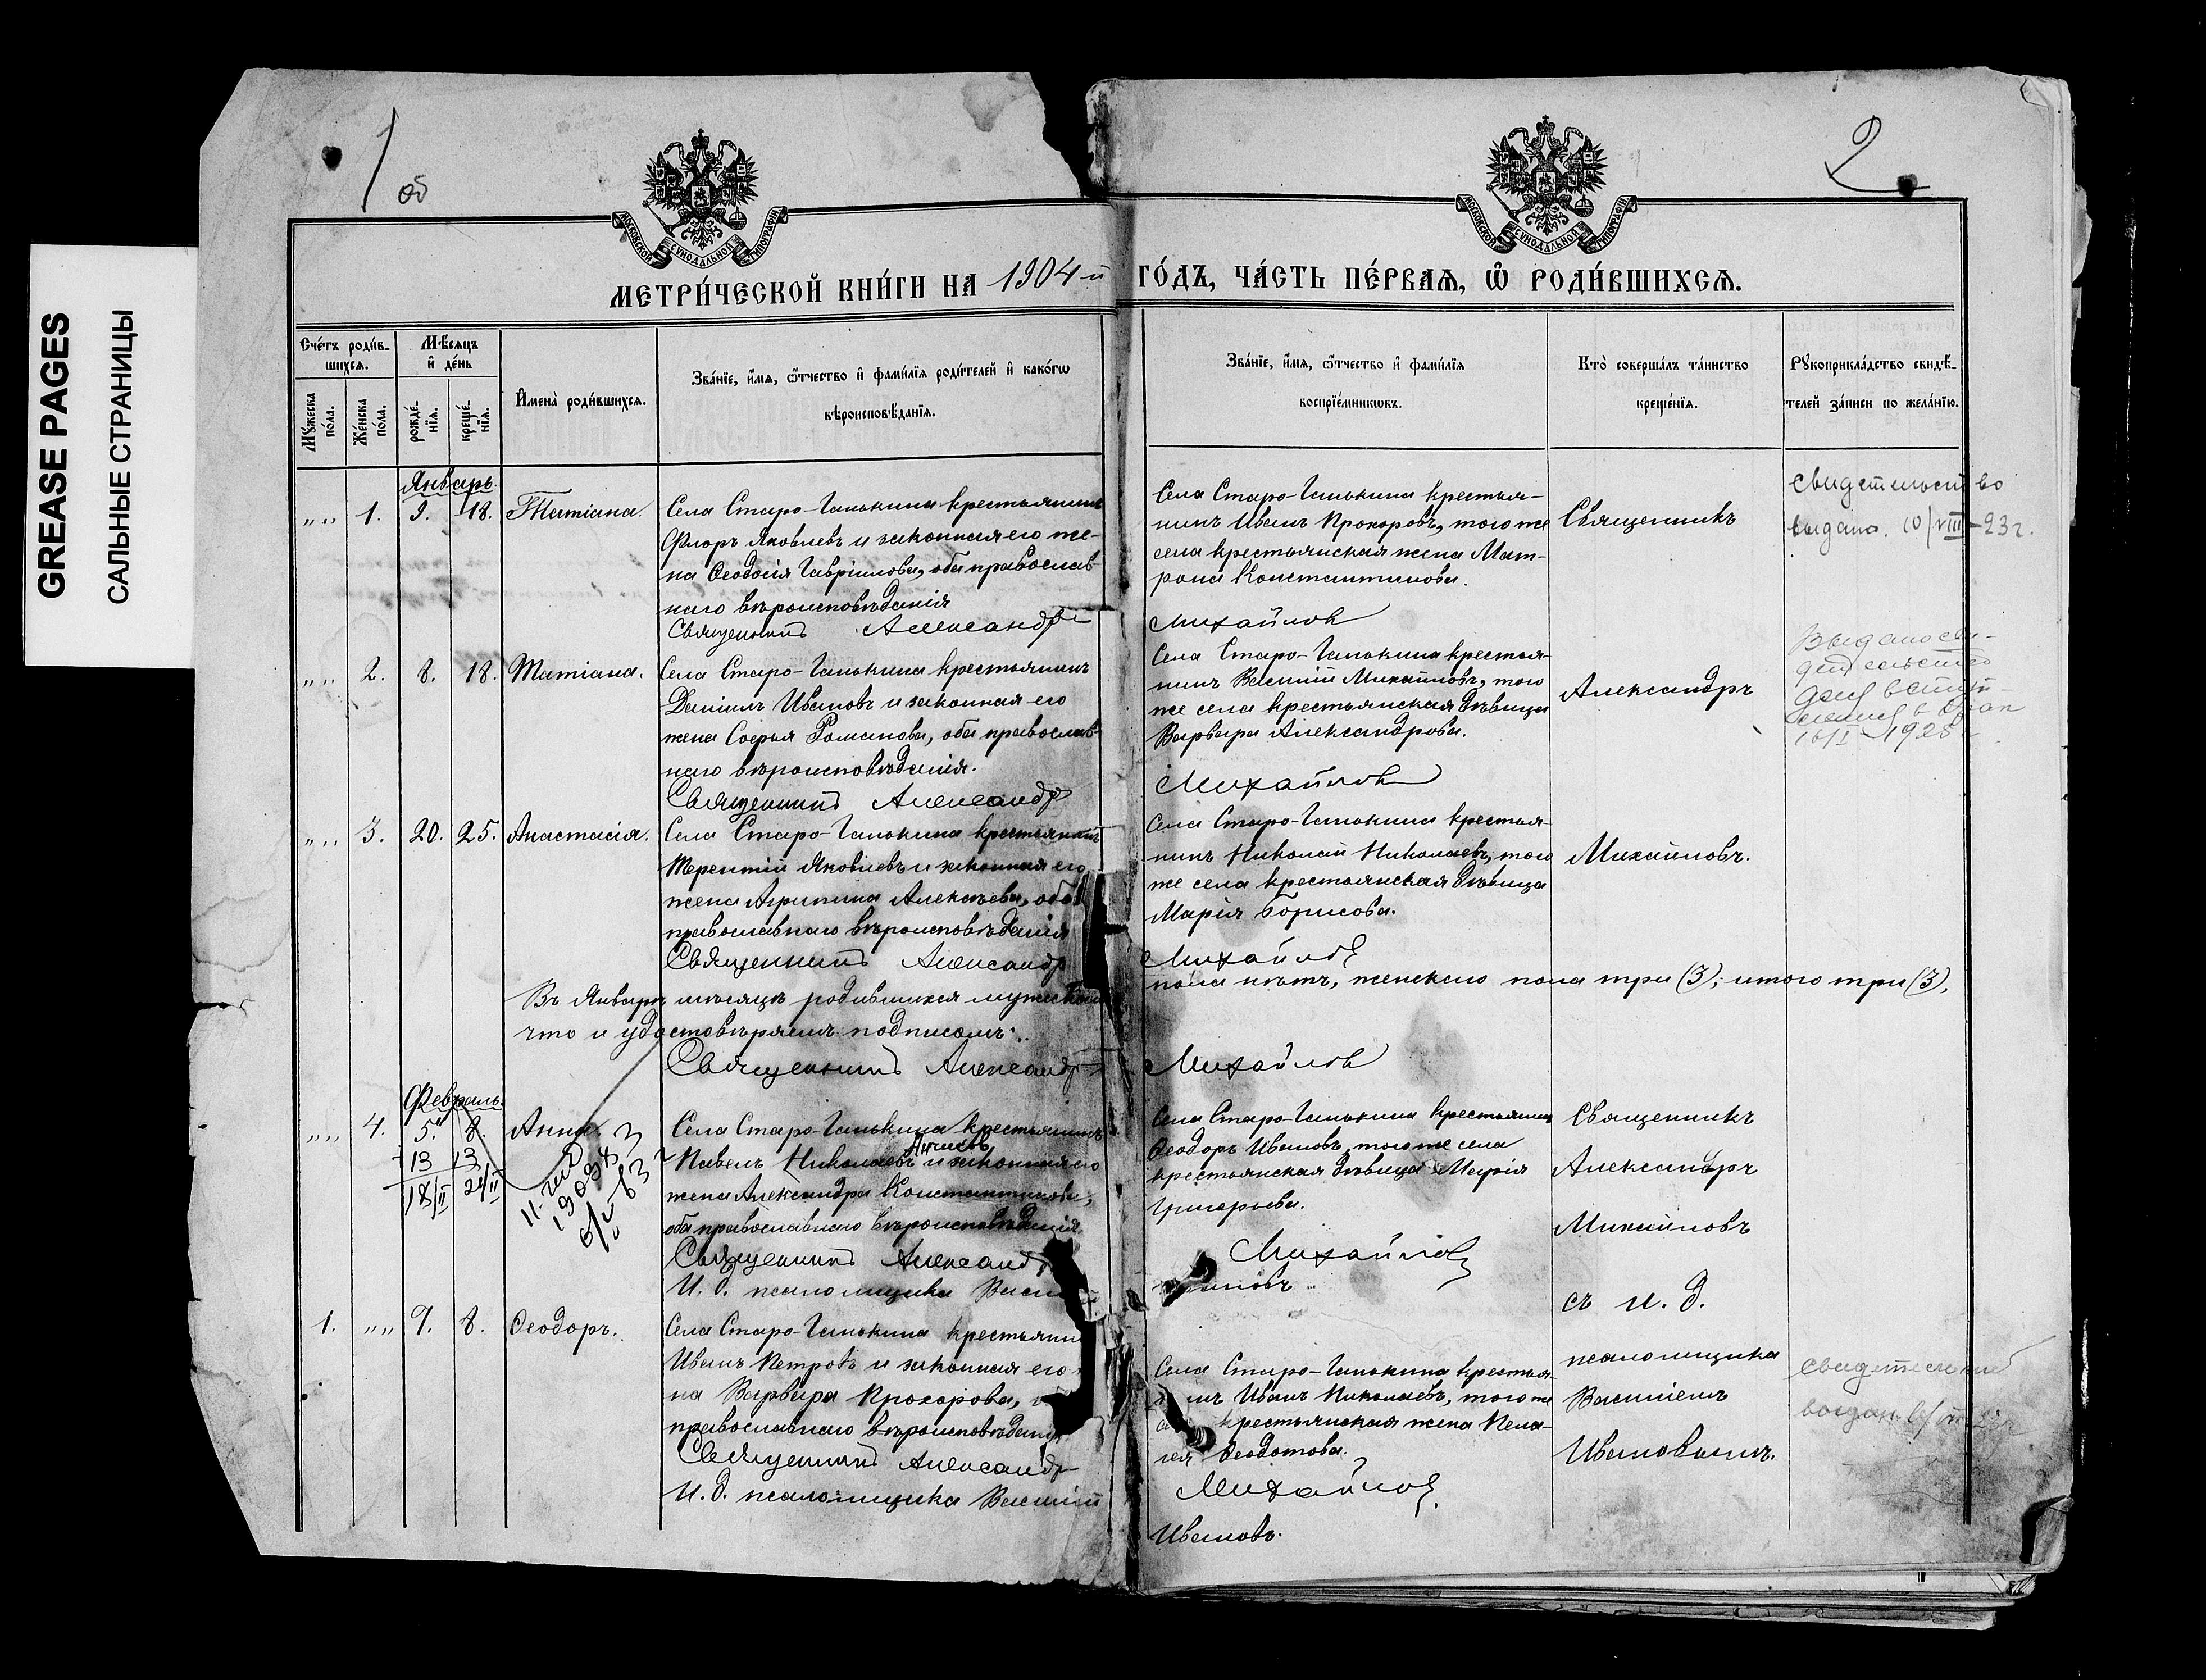 GREASE PAGES
САЛЬНЫЕ СТРАНИЦЫ
1 об
2
МОСКОВСКОЙ СѴНОДАЛЬНОЙ ТИПОГРАФІИ
МОСКОВСКОЙ СѴНОДАЛЬНОЙ ТИПОГРАФІИ
МЕТРИ́ЧЕСКОЙ КНИ́ГИ НА 1904-й ГО́ДЪ, ЧА́СТЬ ПЕ́РВАѦ, Ѡ҆ РОДИ́ВШИХСѦ.
Сче́тъ роди́в-
шихсѧ.
Мꙋ́жеска по́ла.
Же́нска по́ла.
Мѣ́сѧцъ и҆ де́нь
рожде́-нїѧ.
креще́-нїѧ.
И҆мена̀ роди́вшихсѧ.
Зва́нїе, и҆́мѧ, ѻ҆́тчество и҆ фами́лїѧ роди́телей и҆ како́гѡ
вѣроисповѣ́данїѧ.
Зва́нїе, и҆́мѧ, ѻ҆́тчество и҆ фами́лїѧ
воспрїе́мникѡвъ.
Кто̀ соверша́лъ та́инство
креще́нїѧ.
Рꙋкоприкла́дство свидѣ́-
телей за́писи по жела́нїю.
Январь.
„„ 1. 9. 18. Татіана.
Села Старо-Ганькина крестьянинъ
Флоръ Яковлевъ и законная его же-
на Ѳеодосія Гавріилова, оба православ-
наго вѣроисповѣданія
Священникъ Александръ Михайлов
Села Старо-Ганькина крестья-
нинъ Иванъ Прохоровъ, того же
села крестьянская жена Мат-
рона Константинова.
Священникъ
свидетельство
выдано. 10/VIII-23г.
„„ 2. 8. 18. Татіана.
Села Старо-Ганькина крестьянинъ
Даніилъ Ивановъ и законная его
жена Софья Романова, оба православ-
наго вѣроисповѣданія.
Священникъ Александръ Михайлов
Села Старо-Ганькина крестья-
нинъ Василій Михайловъ, того
же села крестьянская дѣвица
Варвара Александрова.
Александръ
Выдано сви-
детельство
для
1925
„„ 3. 20. 25. Анастасія.
Села Старо-Ганькина крестьянинъ
Терентій Яковлевъ и законная его
жена Агрипина Алексѣева, оба
православнаго вѣроисповѣданія
Священникъ Александръ Михайлов
Села Старо-Ганькина крестья-
нинъ Николай Николаевъ, того
же села крестьянская дѣвица
Марія Борисова.
Михайловъ.
Въ Январѣ мѣсяцѣ родившихся мужского пола нѣтъ, женскаго пола три (3); итого три (3),
что и удостовѣряемъ подписомъ:
Священникъ Александръ Михайлов
Февраль.
„„ 4. 5. 8. Анна.
13 13
18/II 21/II
Села Старо-Ганькина крестьянинъ
Павелъ Николаевъ и законная его
жена Александра Константинова,
оба православнаго вѣроисповѣданія
Священникъ Александръ Михайлов
И. д. псаломщика Василій
Села Старо-Ганькина крестьянинъ
Ѳеодоръ Ивановъ, того же села
крестьянская дѣвица Марія
Григорьева.
Священникъ
Александръ
Михайловъ
съ и. д.
псаломщика
Василіемъ
Ивановымъ.
1. „„ 7. 8. Ѳеодоръ.
Села Старо-Ганькина крестьянин
Иванъ Петровъ и законная его
на Варвара Прохорова,
православнаго вѣроисповѣданія
Священникъ Александръ Михайлов
И. д. псаломщика Василій Ивановъ.
Села Старо-Ганькина крестья-
инъ Иванъ Николаевъ, того же
крестьянская жена Пела-
гея Ѳеодотова.
свидетельство